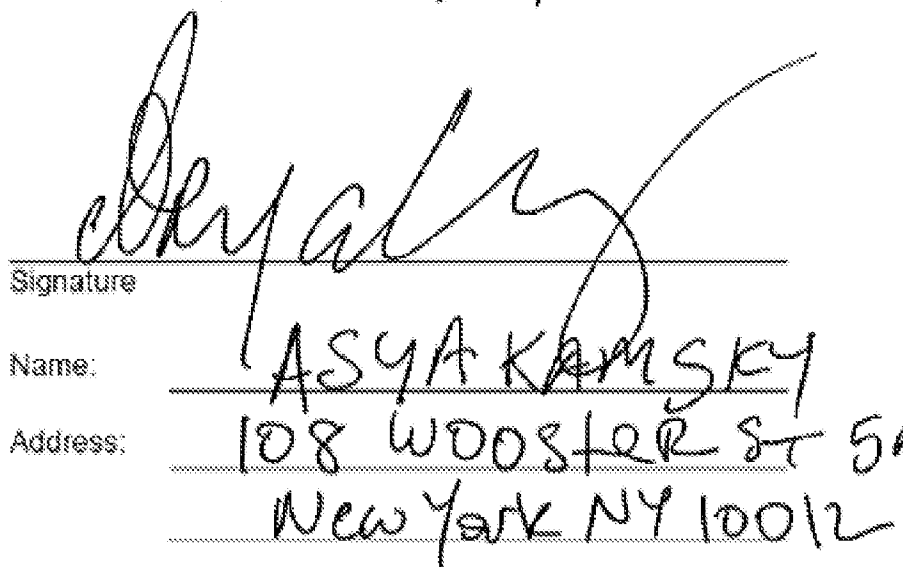 Signature
Name: ASYA KAMSKY
Address: 108 WOOSTER ST
New York NY 10012